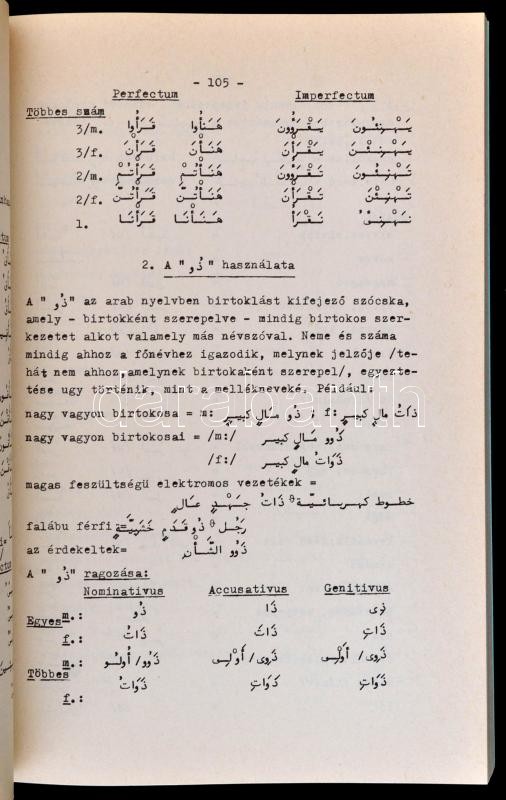 - 105 -
Perfectum Imperfectum
Többes szám
3/m. قَرَأُوا هَنَأُوا يَقْرَؤُونَ يَهْنِئُونَ
3/f. قَرَأْنَ هَنَأْنَ يَقْرَأْنَ يَهْنِئْنَ
2/m. قَرَأْتُمْ هَنَأْتُمْ تَقْرَؤُونَ تَهْنِئُونَ
2/f. قَرَأْتُنَّ هَنَأْتُنَّ تَقْرَأْنَ تَهْنِئْنَ
1. قَرَأْنَا هَنَأْنَا نَقْرَأُ نَهْنِئُ
2. A "ذُو" használata
A "ذُو" az arab nyelvben birtoklást kifejező szócska,
amely - birtokként szerepelve - mindig birtokos szer-
kezetet alkot valamely más névszóval. Neme és száma
mindig ahhoz a főnévhez igazodik, melynek jelzője /te-
hát nem ahhoz, amelynek birtokaként szerepel/, egyezte-
tése ugy történik, mint a mellékneveké. Például:
nagy vagyon birtokosa = m: ذُو مَالٍ كبيرٍ ; f: ذَاتُ مالٍ كبيرٍ
nagy vagyon birtokosai = /m:/ ذَوُو مَالٍ كبير
/f:/ ذَوَاتُ مالٍ كبير
magas feszültségü elektromos vezetékek =
خطوط كهربائيّة ذَاتُ جَهْدٍ عَالٍ
falábu férfi = رَجُل ذُو قَدَمٍ خَشَبِيَّةٍ
az érdekeltek= ذَوُو الشَّأْن
A "ذُو" ragozása:
Nominativus Accusativus Genitivus
Egyes m.: ذُو ذَا ذِى
f.: ذَاتُ ذَاتَ ذَاتِ
Többes m.: ذَوُو / أُولُو ذَوِى / أُولِى ذَوِى / أُولِى
f.: ذَوَاتُ ذَوَاتِ ذَوَاتِ
darabanth